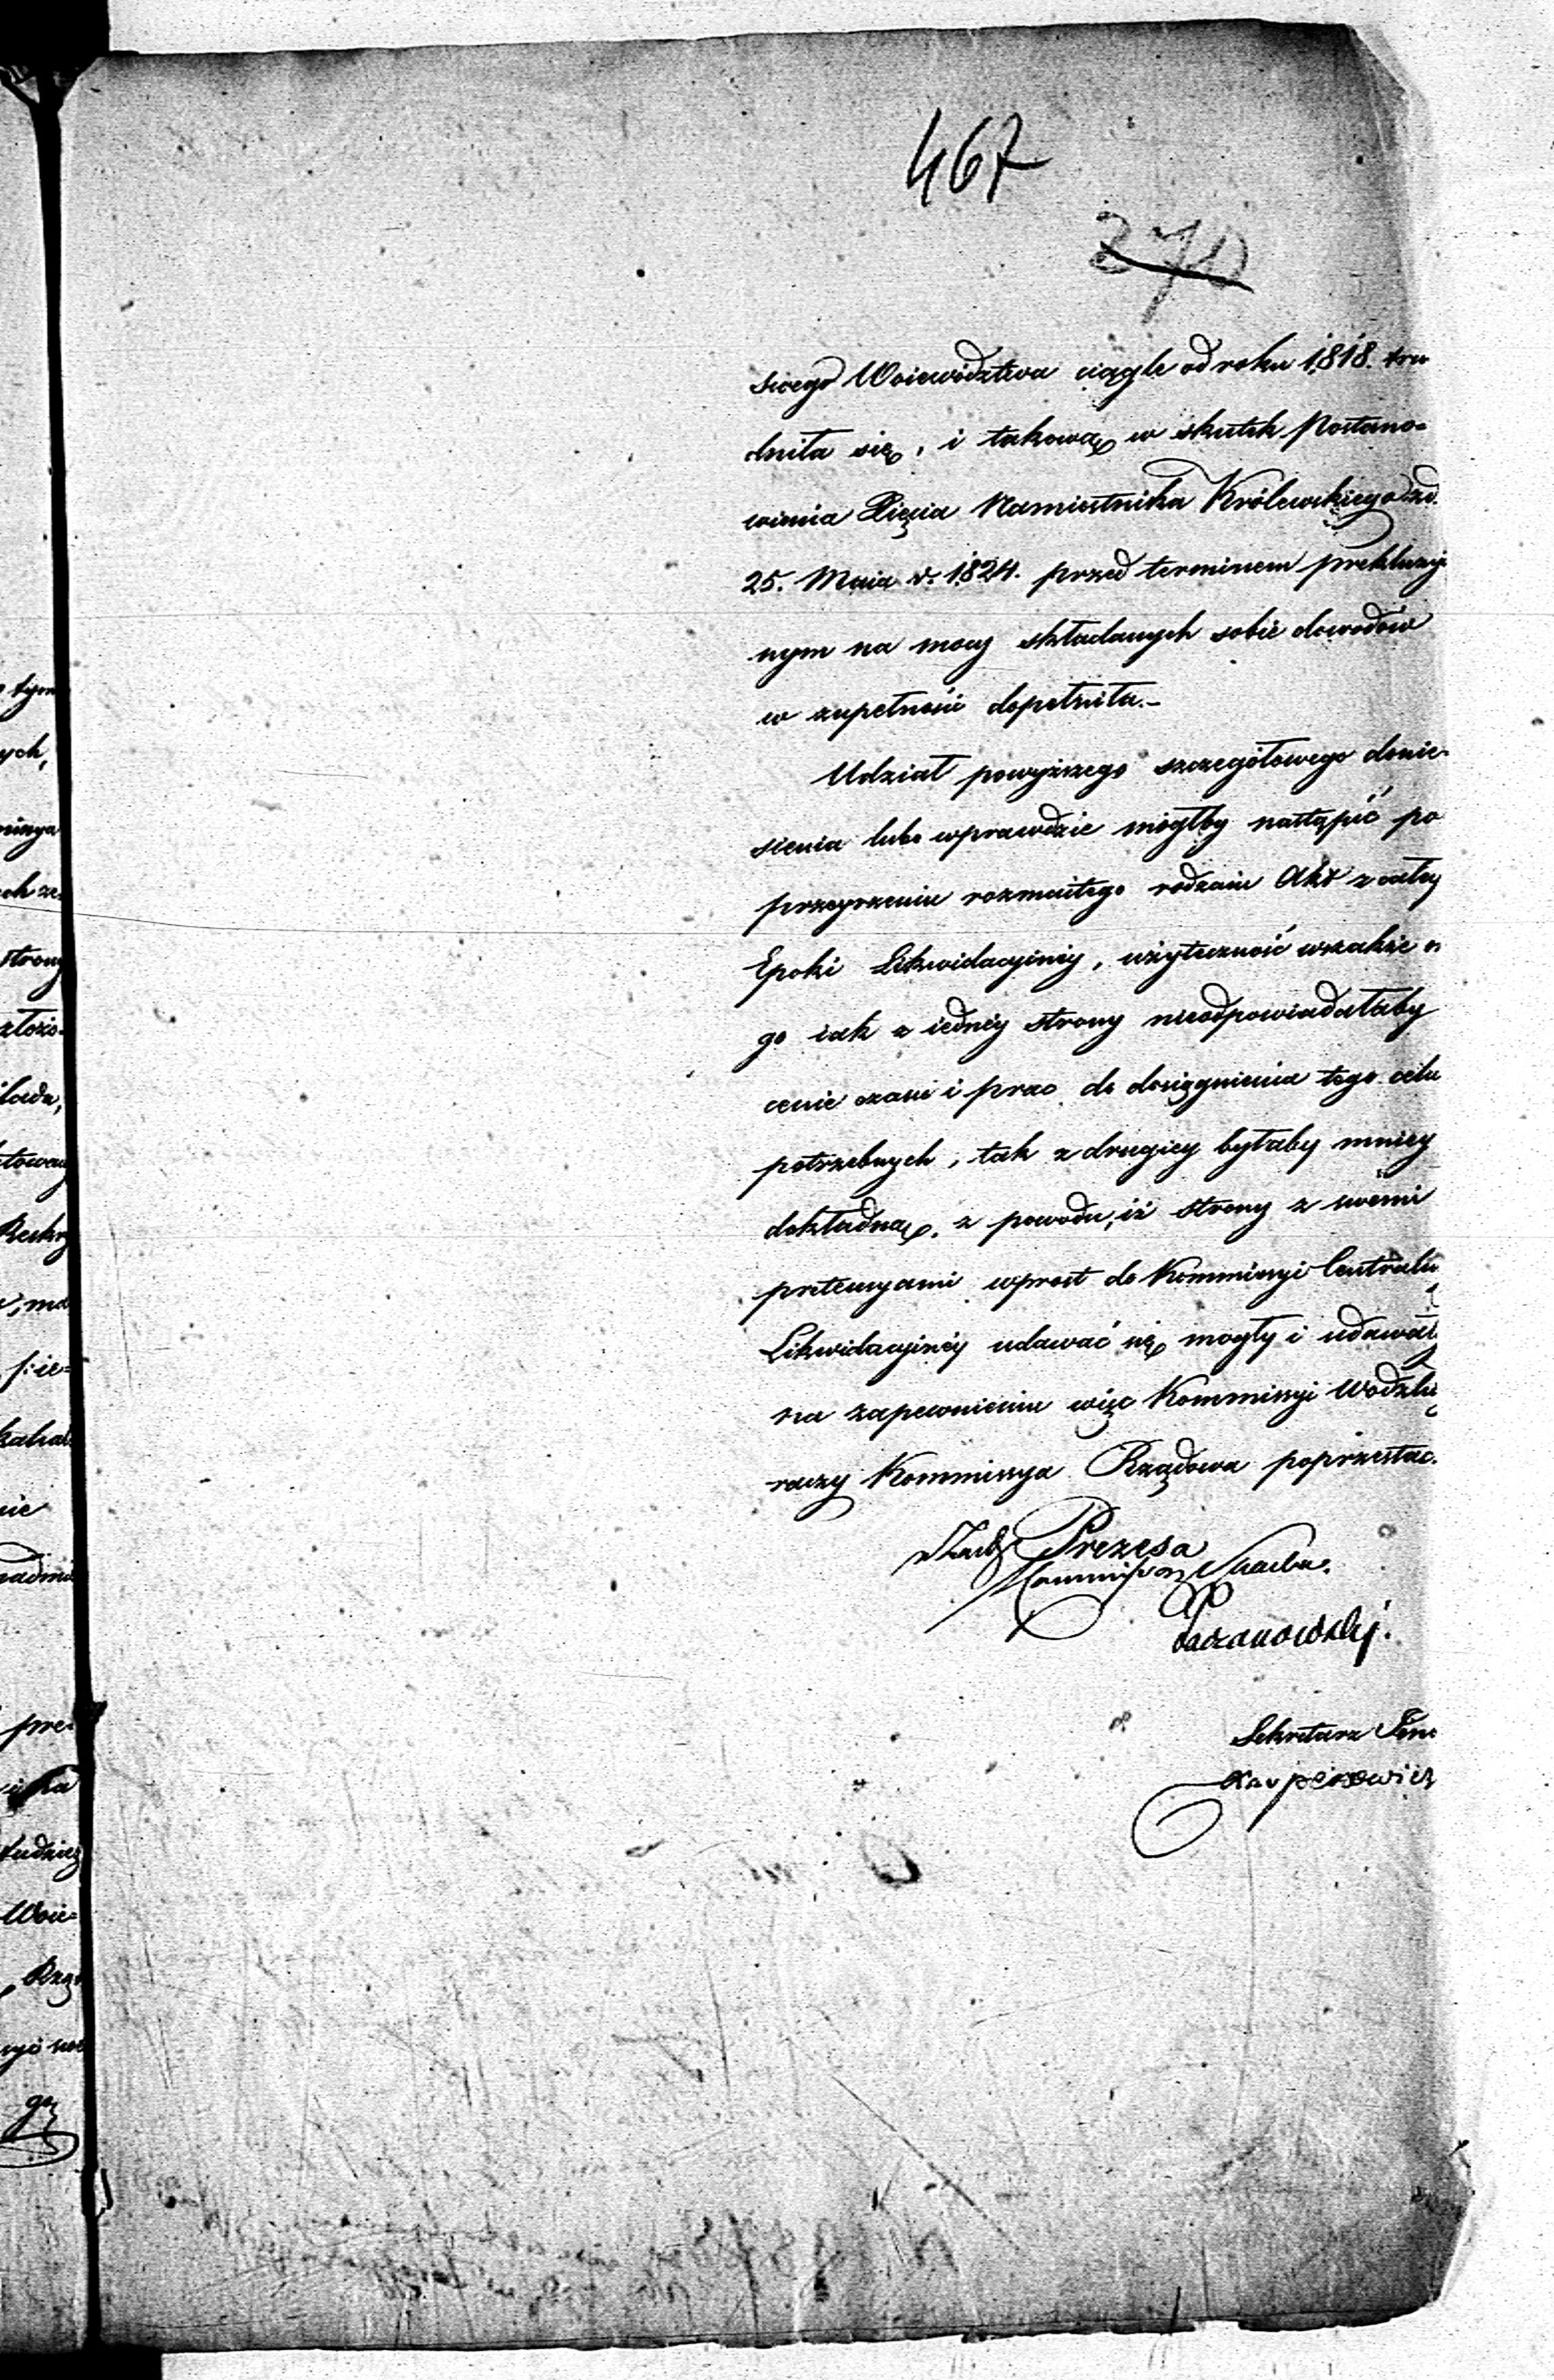 467
270
swego Woiewództwa ciągle od roku 1818. tru
dniła się, i takową w skutek Postano=
wienia Xięcia Namiestnika Królewskiego zd.
25. Maia r. 1824. przed terminem prekluzyi
nym na mocy składanych sobie dowodów
w zupełności dopełniła.-
Udział powyższego szczegółowego donie-
sienia lubo wprawdzie mógłby nastąpić po
przeyrzeniu rozmaitego rodzaiu Akt z całey
Epoki Likwidacyiney, użyteczność wszakże
go iak z iedney strony nieodpowiadałaby
cenie czasu i prac do dosięgnienia tego celu
potrzebnych, tak z drugiey byłaby mniey
dokładną, z powodu, iż strony z swemi
pretensyami wprost do Kommissyi Centraln
Likwidacyiney udawać się mogły i udawał
na zapewnieniu więc Kommissyi Wodzkiy
raczy Kommissya Rządowa poprzestać.
w Zastę Prezesa
Kommissarz Skarbu.
Sekretarz Jene
Kasperowicz
tym
ych,
missya
ch ze
strony
złożo-
towan
, ma
nie
pre-
Woie=
Rzą